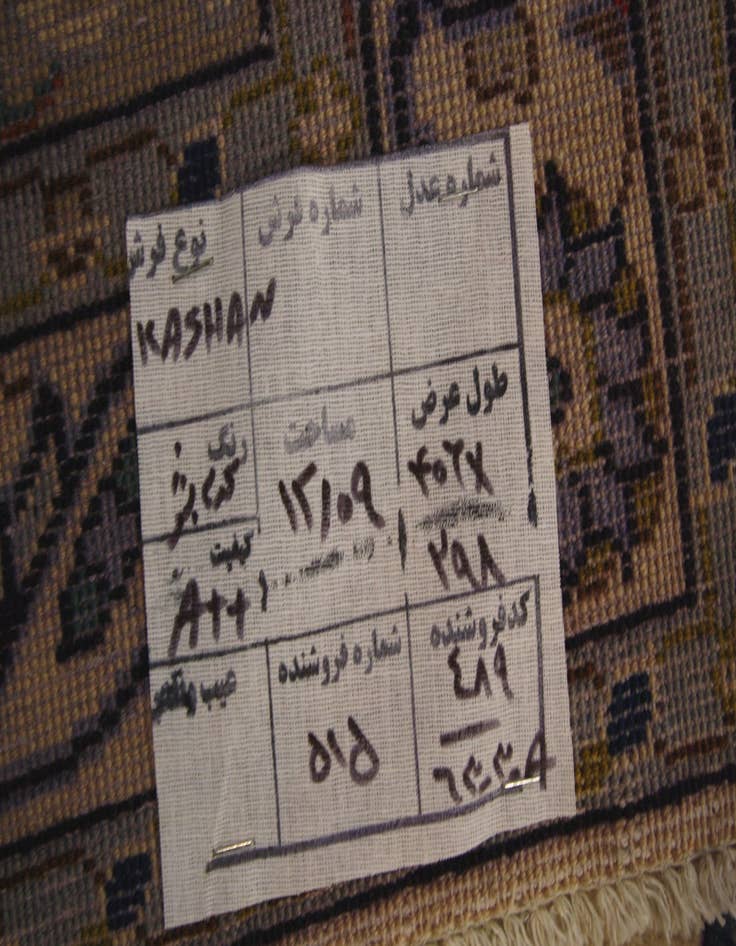 شماره عدل
شماره فرش
نوع فرش
KASHAN
طول عرض
۴۰۶X
۲۹۸
مساحت
۱۲/۰۹
رنگ
کیفیت
A++
کد فروشنده
٤٨٩
شماره فروشنده
۵۱۵
عیب و نقص